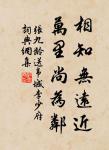 相知無遠近
萬里尚為鄰
張九齡送韋城李少府
詞典網集